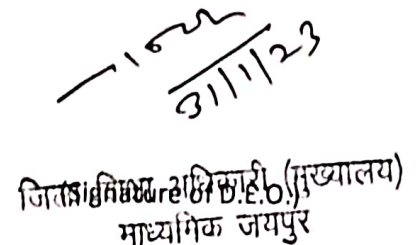 31/1/23
जिला शिक्षा अधिकारी (मुख्यालय)
(Signature of D.E.O.)
माध्यमिक जयपुर